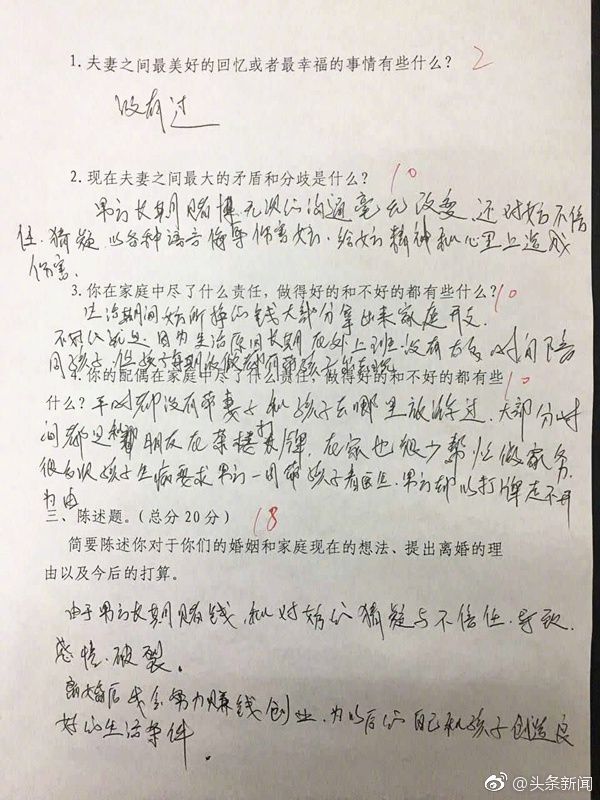 1.夫妻之间最美好的回忆或者最幸福的事情有些什么? 2
没有过
2.现在夫妻之间最大的矛盾和分歧是什么? 10
男方长期赌博 无次的沟通毫无改变,还对女方不信
任.猜疑.以各种语言侮辱伤害女方.给女方精神和心里上造成
伤害.
3.你在家庭中尽了什么责任,做得好的和不好的都有些什么? 10
生活期间女方所挣的钱大部分拿出来家庭开支.
不好的就是因为生活原因长期在外上班没有太多时间陪
同孩子.
4.你的配偶在家庭中尽了什么责任,做得好的和不好的都有些 10
什么? 平时都没有带妻子和孩子去哪里放松过.大部分时
间都是和朋友在茶楼打牌,在家也很少帮忙做家务.
很多次孩子生病要求男方一同带孩子看医生.男方却以打牌走不开
为由
三、陈述题。(总分20分) 18
简要陈述你对于你们的婚姻和家庭现在的想法、提出离婚的理
由以及今后的打算。
由于男方长期赌钱,和对女方的猜疑与不信任.导致.
感情.破裂。
离婚后我会努力赚钱创业,为以后的自己和孩子创造良
好的生活条件.
@头条新闻